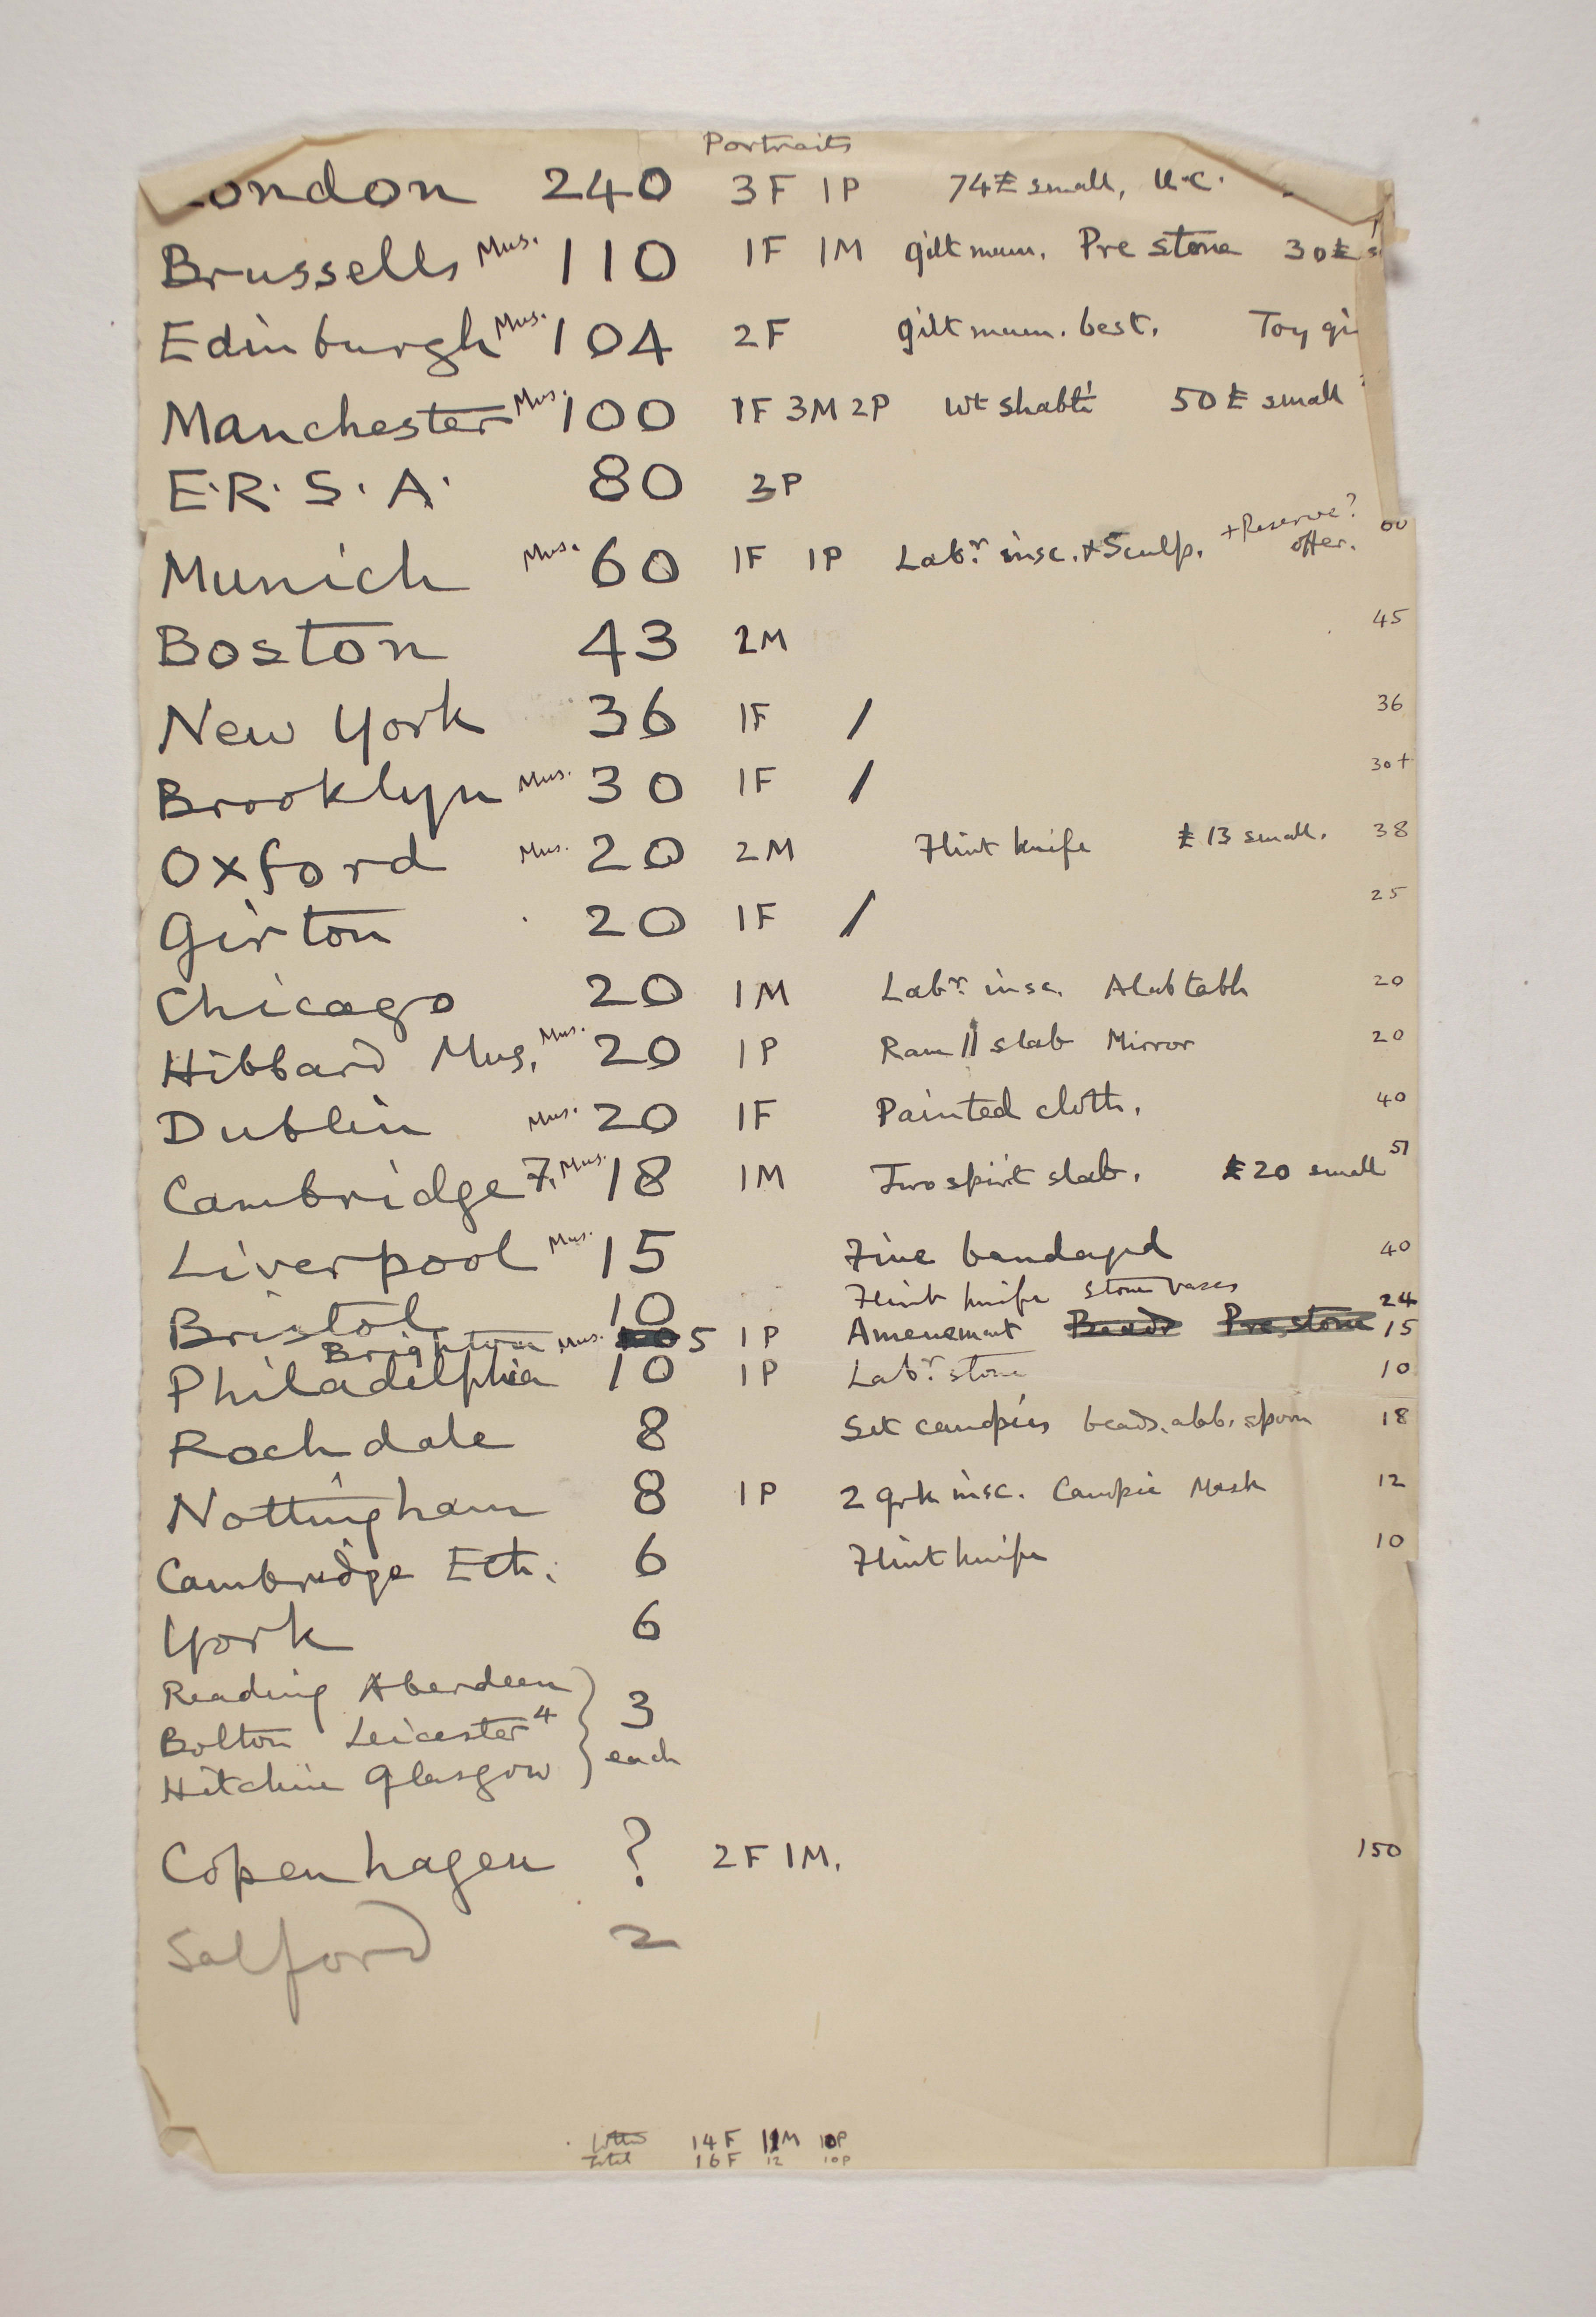 Portraits
London 240 3F 1P 74£ small, U.C.
Brussells Mus. 110 1F 1M gilt mum. Pre stone 30£
Edinburgh Mus. 104 2F gilt mum. best. Toy
Manchester Mus. 100 1F 3M 2P Wt shabti 50£ small
E.R.S.A. 80 3P
Munich Mus. 60 1F 1P Labr. insc. + Sculp. + Reserve? offer. 60
Boston 43 2M 45
New York 36 1F / 36
Brooklyn Mus. 30 1F / 30+
Oxford Mus. 20 2M Flint knife £13 small. 38
Girton 20 1F / 25
Chicago 20 1M Labr. insc. Alab tabh 20
Hibbard Mus. Mus. 20 1P Ram slab Mirror 20
Dublin Mus. 20 1F Painted cloth. 40
Cambridge F. Mus. 18 1M Two spirit slab. £20 small 51
Liverpool Mus. 15 Fine bandaged 40
Bristol 10 Flint knife stone vases 24
Brighton Mus. 5 1P Amenemat Beads Pre stone 15
Philadelphia 10 1P Labr. stone 10
Rochdale 8 Set canopics beads. alab. spoon 18
Nottingham 8 1P 2 grk insc. Canopic Mask 12
Cambridge Eth. 6 Flint knife 10
York 6
Reading Aberdeen
Bolton Leicester 4 3
Hitchin Glasgow each
Copenhagen ? 2F 1M. 150
Salford 2
14F 11M 10P
Total 16F 12 10P